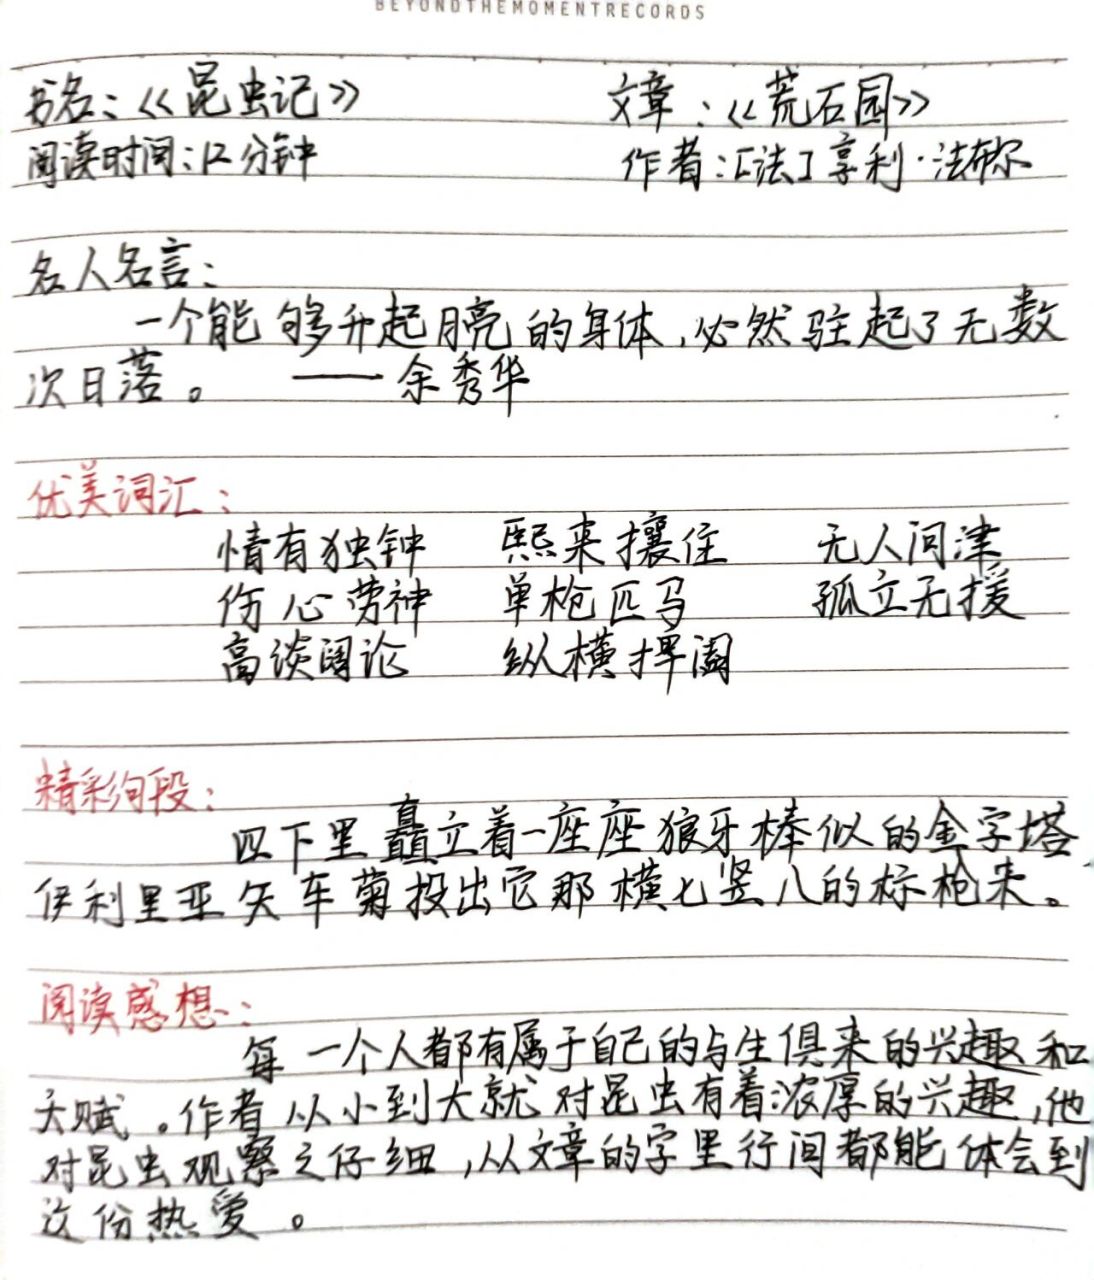 BEYONDTHEMOMENTRECORDS
书名:《昆虫记》 文章:《荒石园》
阅读时间:12分钟 作者:[法]享利·法布尔
名人名言:
一个能够升起月亮的身体,必然驻起了无数
次日落。 ——余秀华
优美词汇:
情有独钟 熙来攘住 无人问津
伤心劳神 单枪匹马 孤立无援
高谈阔论 纵横捭阖
精彩句段:
四下里矗立着一座座狼牙棒似的金字塔,
伊利里亚矢车菊投出它那横七竖八的标枪来。
阅读感想:
每一个人都有属于自己的与生俱来的兴趣和
天赋。作者从小到大就对昆虫有着浓厚的兴趣,他
对昆虫观察之仔细,从文章的字里行间都能体会到
这份热爱。